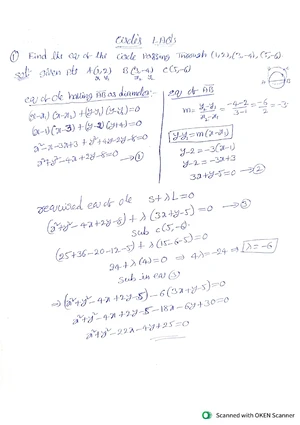 ① Find the eq of the Circle Passing through (1,2), (3,-4), (5,-6).
Sol: given pts A(1,2) B(3,-4) C(5,-6)
x₁ y₁ x₂ y₂
eq of ⊙le having AB as diameter:-
(x-x₁)(x-x₂)+(y-y₁)(y-y₂)=0
(x-1)(x-3)+(y-2)(y+4)=0
x²-x-3x+3+y²+4y-2y-8=0
x²+y²-4x+2y-5=0 →①
eq of AB
m = y₂-y₁/x₂-x₁ = -4-2/3-1 = -6/2 = -3
y-y₁=m(x-x₁)
y-2=-3(x-1)
y-2=-3x+3
3x+y-5=0 →②
required eq of ⊙le S+λL=0
(x²+y²-4x+2y-5)+λ(3x+y-5)=0 →③
Sub C(5,-6)
(25+36-20-12-5)+λ(15-6-5)=0
24+λ(4)=0 ⇒ 4λ=-24 ⇒ λ=-6
Sub in eq(3)
⇒(x²+y²-4x+2y-5)-6(3x+y-5)=0
x²+y²-4x+2y-5-18x-6y+30=0
x²+y²-22x-4y+25=0
Scanned with OKEN Scanner